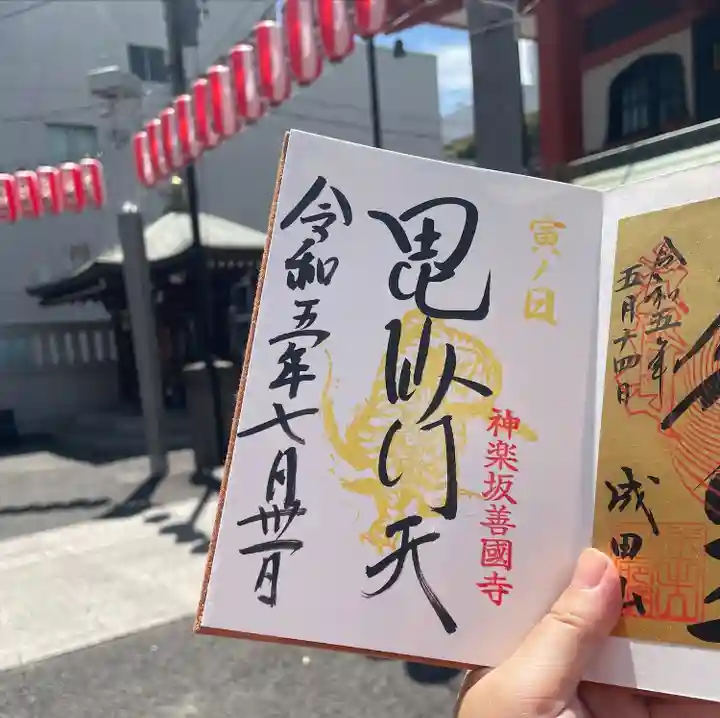 寅ノ日
毘沙門天
神楽坂善國寺
令和五年七月卅一日
令和五年
五月廿四日
成田山